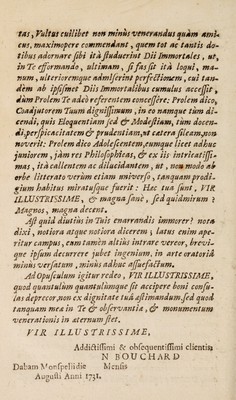 tas, Vultus cuilibet non minùs venerandus quàm ami-
cus, maximopere commendant, quem tot ac tantis do-
tibus adornare sibi ità studuerint Dii Immortales, ut,
in Te efformando, ultimam, si fas sit ità loqui, ma-
num, ulterioremque admiserint perfectionem, cui tan-
dèm ab ipsimet Diis Immortalibus cumulus accessit,
dùm Prolem Te adeò referentem concessêre: Prolem dico,
Coadjutorem Tuum dignissimum, in eo namque tùm di-
cendi, quis Eloquentiam sed & Modestiam, tùm docen-
di, perspicacitatem & prudentiam, ut catera sileam, non
noverit: Prolem dico Adolescentem, eumque licet adhuc
juniorem, jàm res Philosophicas, & ex iis intricatissi-
mas, ità callentem ac dilucidantem, ut, non modò ab
orbe litterato verùm etiam universo, tanquam prodi-
gium habitus miratusque fuerit: Hæc tua sunt, VIR
ILLUSTRISSIME, & magna sanè, sed quidmirum?
Magnos, magna decent.
Ast quid diutiùs ac Tuis enarrandis immorer? nota
dixi, notiora atque notiora dicerem; latus enim ape-
ritur campus, cum tamèn altiùs intrare vereor, brevi-
que ipsum decurrere jubet ingenium, in arte oratoriâ
minùs versatum, minùs adhuc assuefactum.
Ad Opusculum igitur redeo, VIR ILLUSTRISSIME,
quod quantulum quantulumque sit accipere boni consu-
las deprecor, non ex dignitate tuâ æstimandum, sed quod
tanquam mea in Te & observantiæ, & monumentum
venerationis in æternum stet.
VIR ILLUSTRISSIME,
Addictissimi & obsequentissimi clientis,
N BOUCHARD
Dabam Monspeliidie Mensis
Augusti Anni 1731.